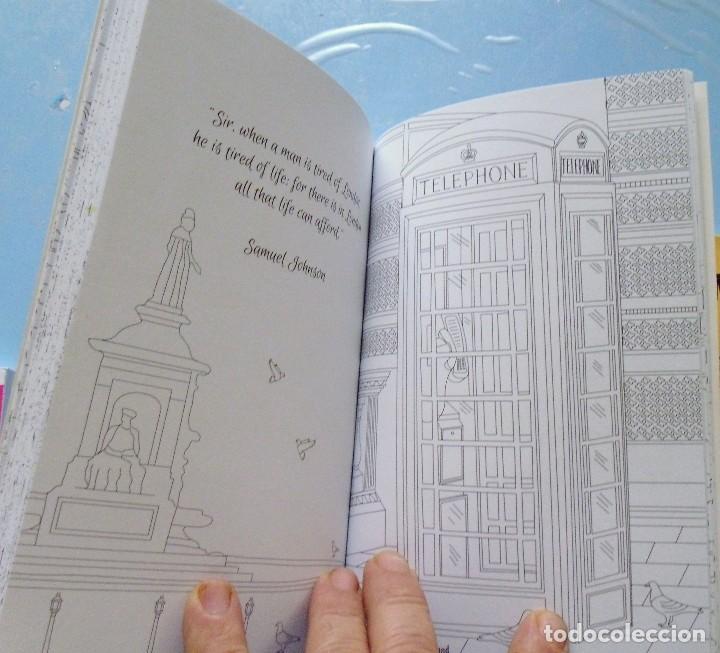 "Sir, when a man is tired of London,
he is tired of life; for there is in London
all that life can afford."
Samuel Johnson
TELEPHONE
TELEPHONE
todocoleccion